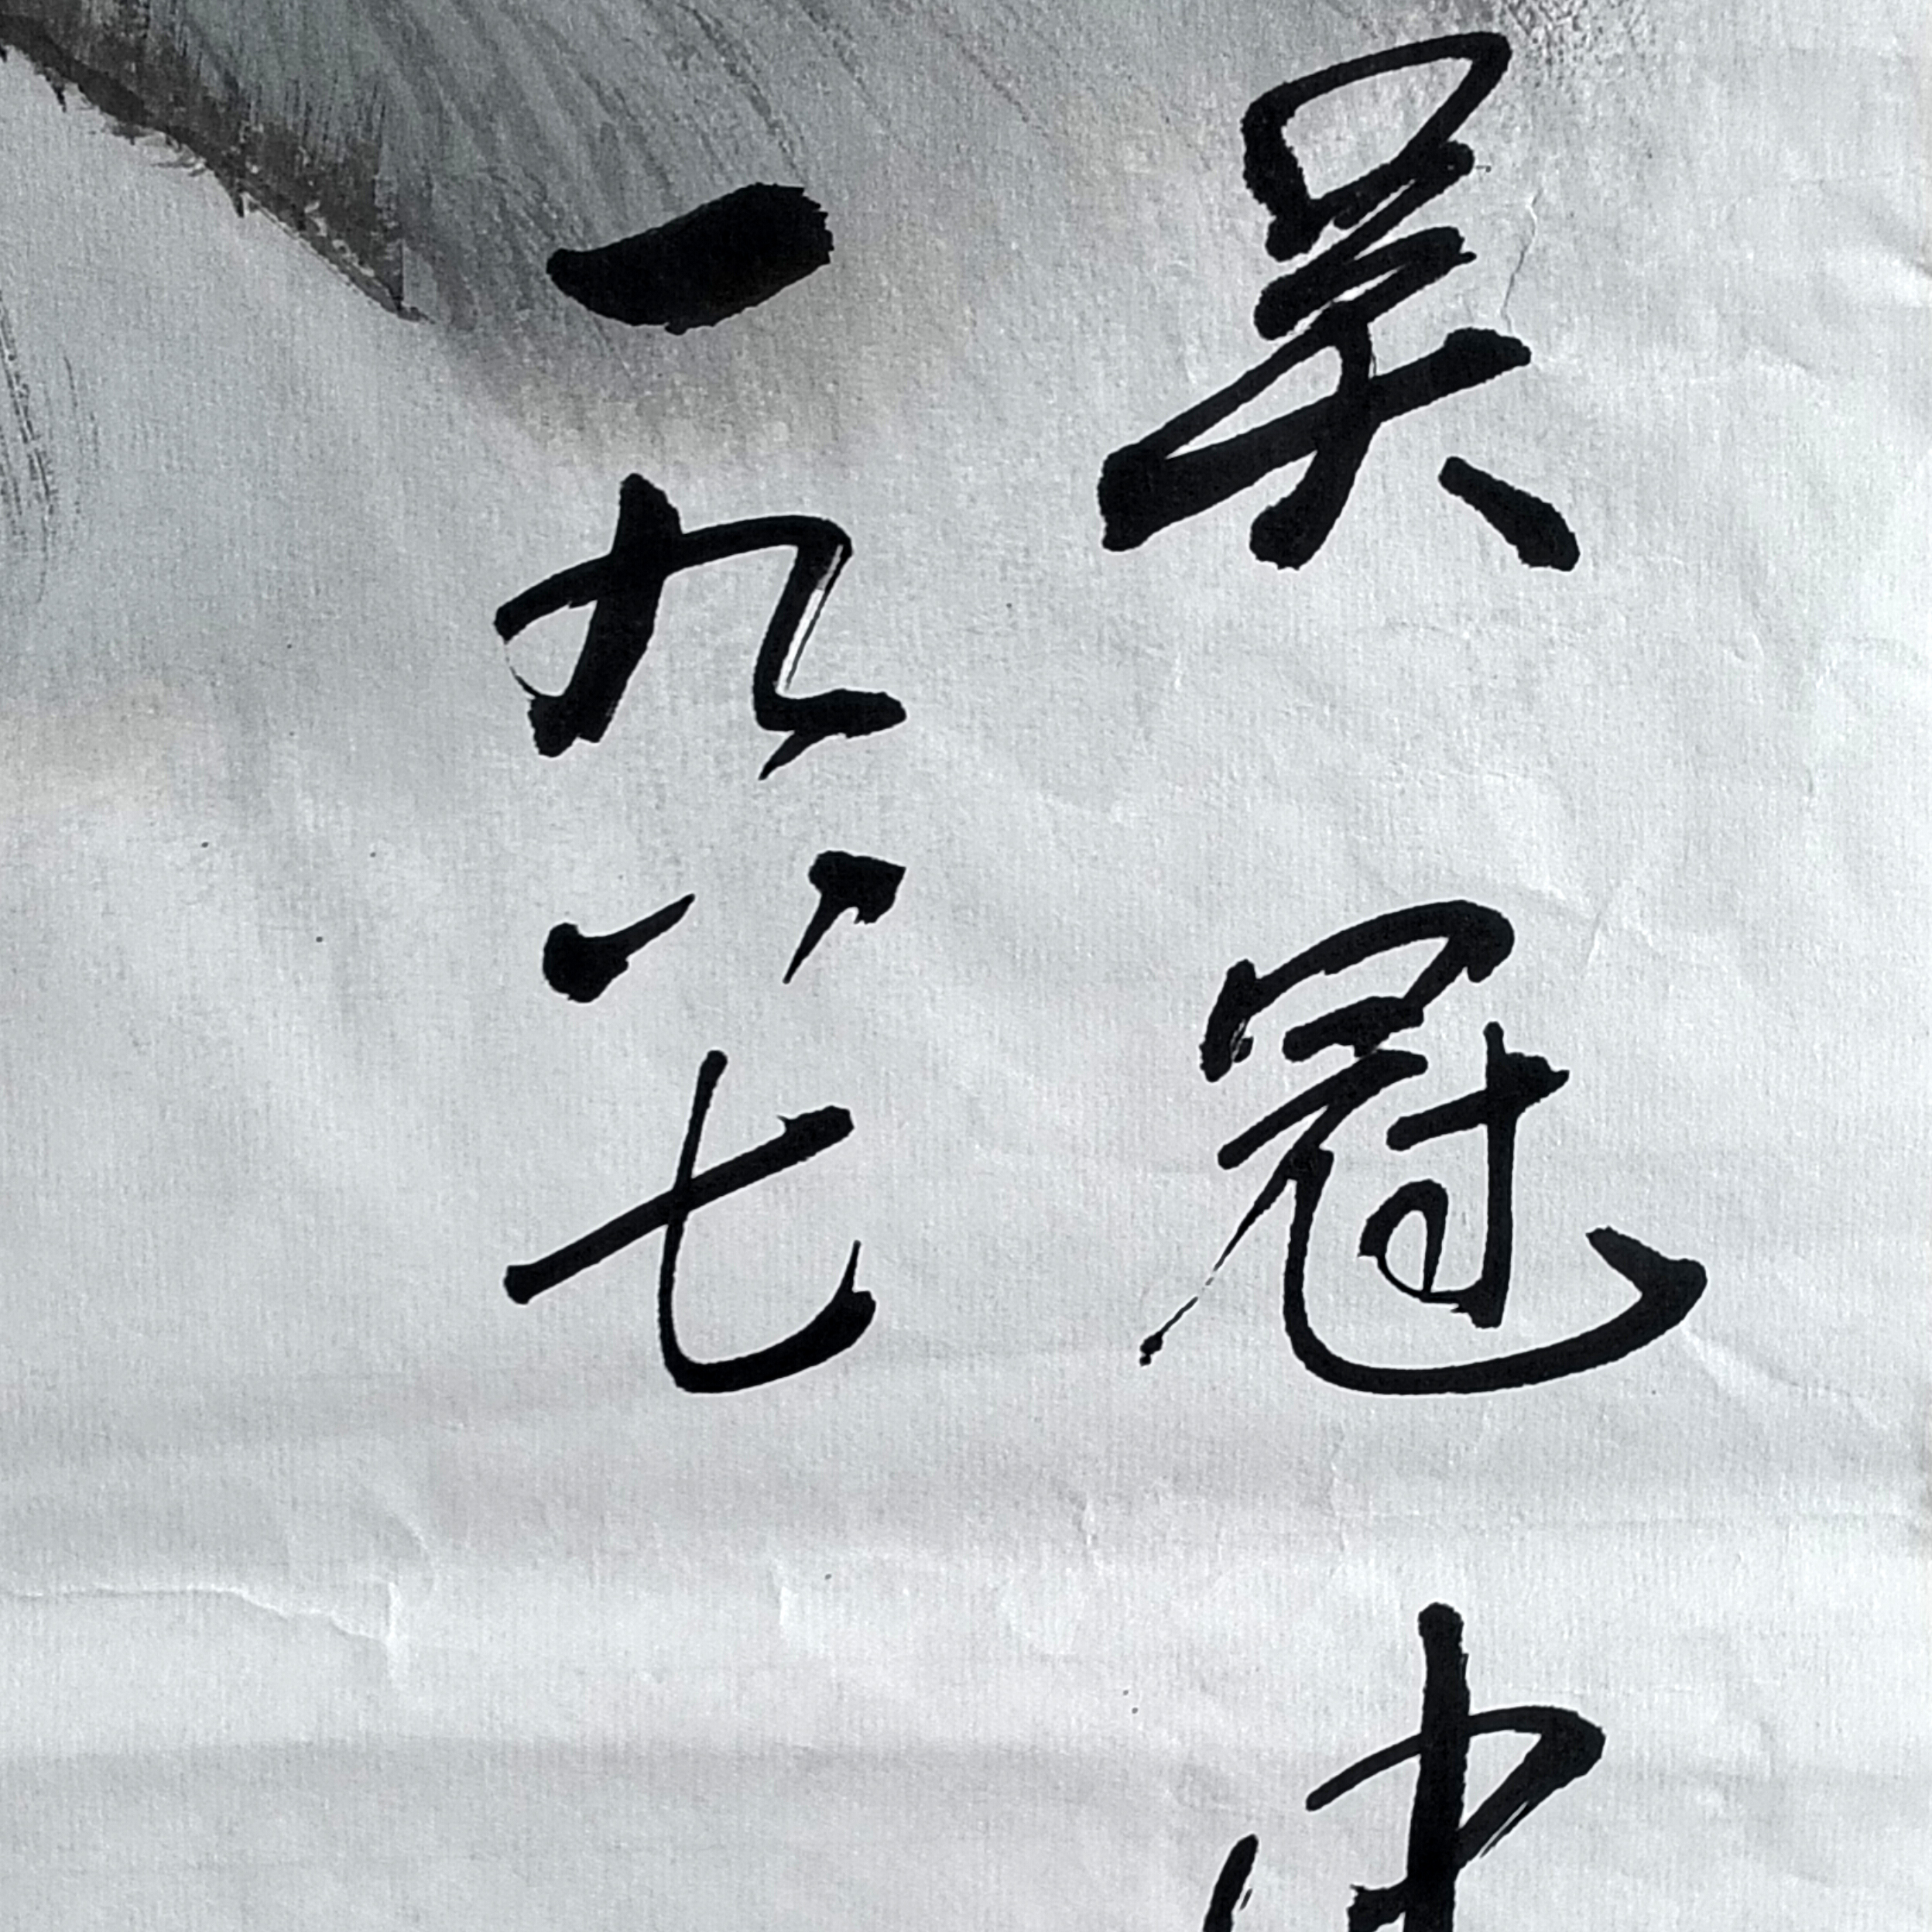 吴冠
一九八七